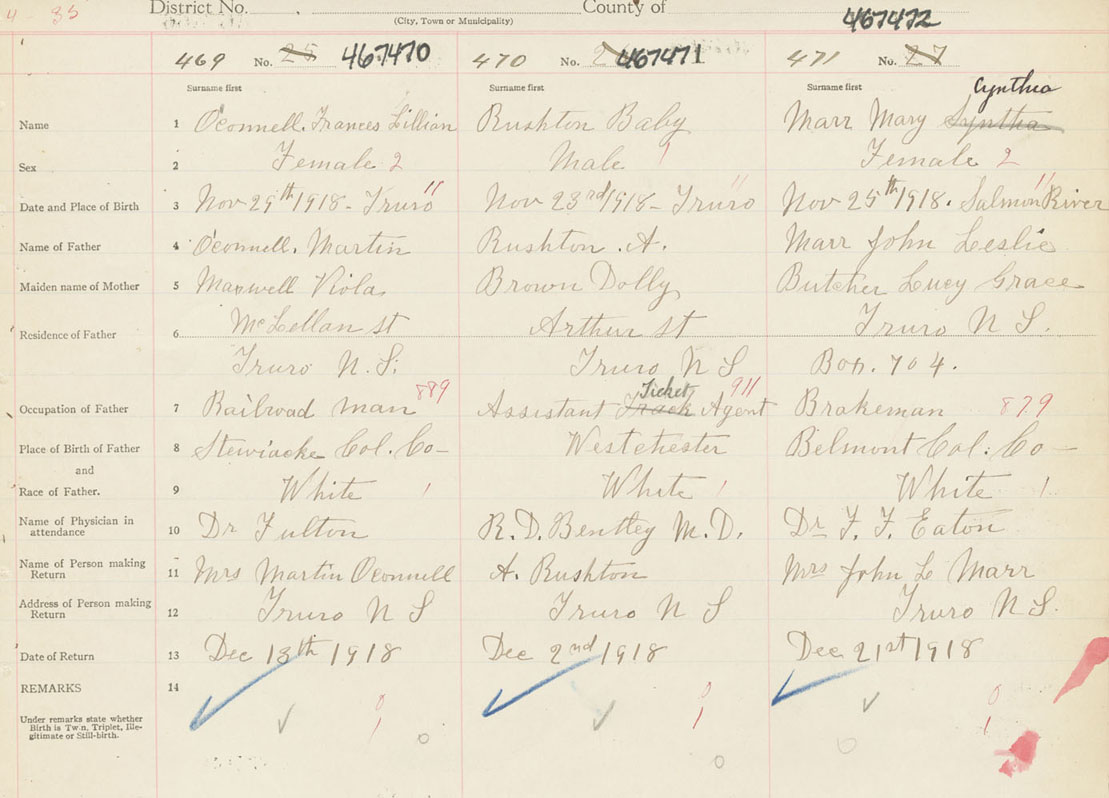 4 - 35
District No. County of
(City, Town or Municipality)
467472
469 No. 25 467470 470 No. 467471 471 No. 27
Surname first Surname first Surname first
Cynthia
Name 1 O'connell. Frances Lillian Rushton Baby Marr Mary Syntha
Sex 2 Female 2 Male 1 Female 2
Date and Place of Birth 3 Nov 29th 1918 - Truro 11 Nov 23rd 1918 - Truro 11 Nov 25th 1918. Salmon River 11
Name of Father 4 O'connell. Martin Rushton. A. Marr John Leslie
Maiden name of Mother 5 Maxwell Viola Brown Dolly Butcher Lucy Grace
Residence of Father 6 McLellan st Arthur st Truro N S.
Truro N. S. Truro N S Box. 704.
889 Ticket 911
Occupation of Father 7 Railroad man Assistant Track Agent Brakeman 879
Place of Birth of Father 8 Stewiacke Col. Co- Westchester Belmont Col. Co-
and
Race of Father. 9 White 1 White 1 White 1
Name of Physician in
attendance 10 Dr Fulton R. D. Bentley M. D. Dr F. F. Eaton
Name of Person making
Return 11 Mrs Martin Oconnell A. Rushton Mrs John L Marr
Address of Person making
Return 12 Truro N S Truro N S Truro N S.
Date of Return 13 Dec 13th 1918 Dec 2nd 1918 Dec 21st 1918
REMARKS 14
0 0 0
Under remarks state whether
Birth is Twin, Triplet, Ille-
gitimate or Still-birth.
1 1 1
0 0 0